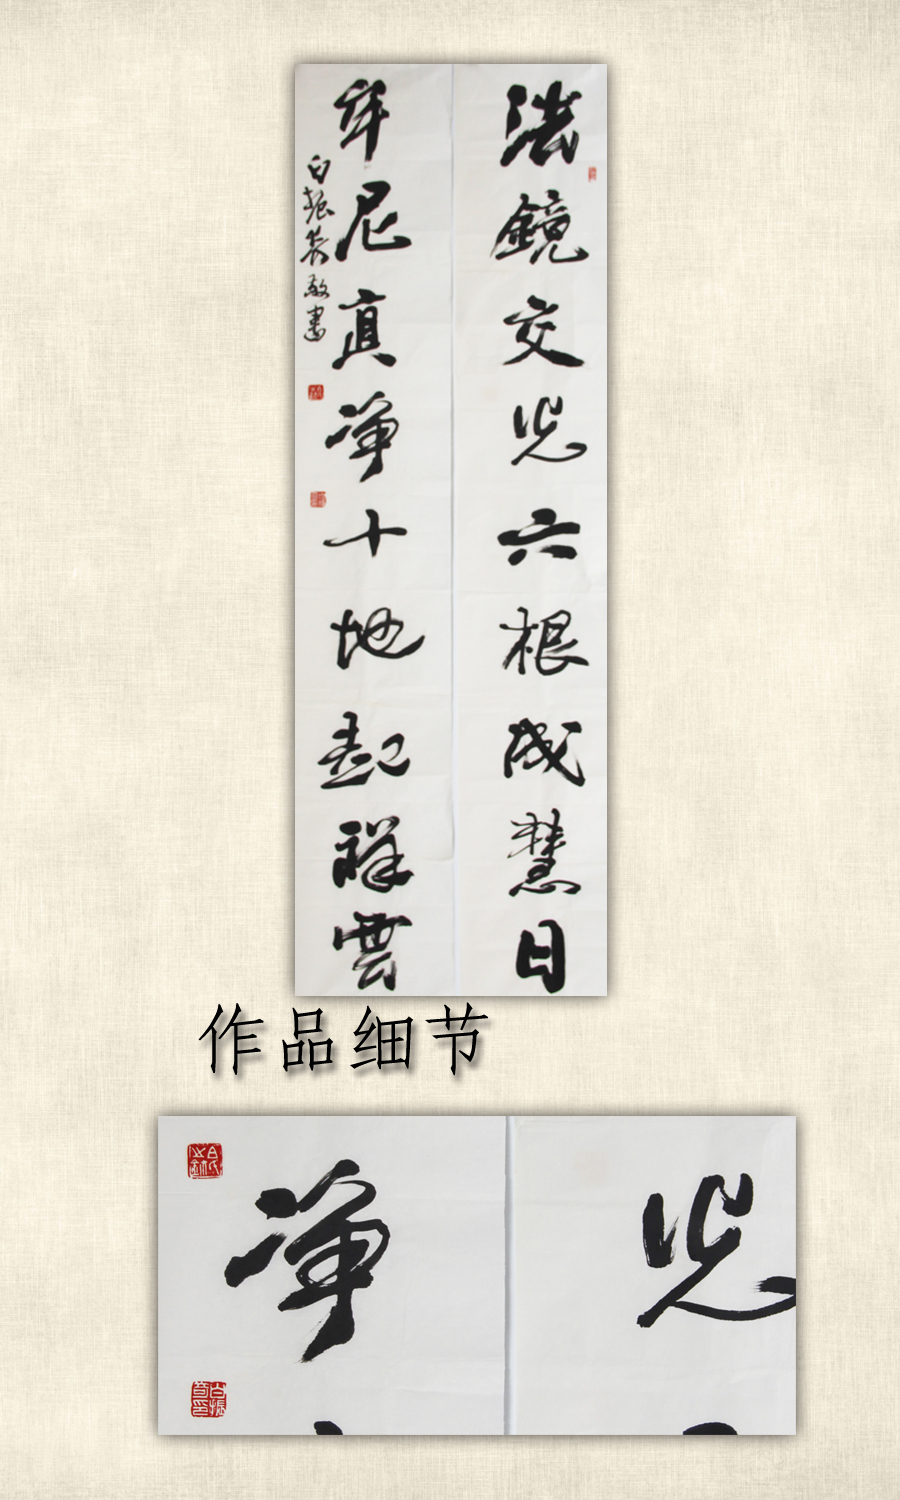 法鏡交光六根成慧日
牟尼真净十地起祥雲
白振敬書
作品细节
净 光